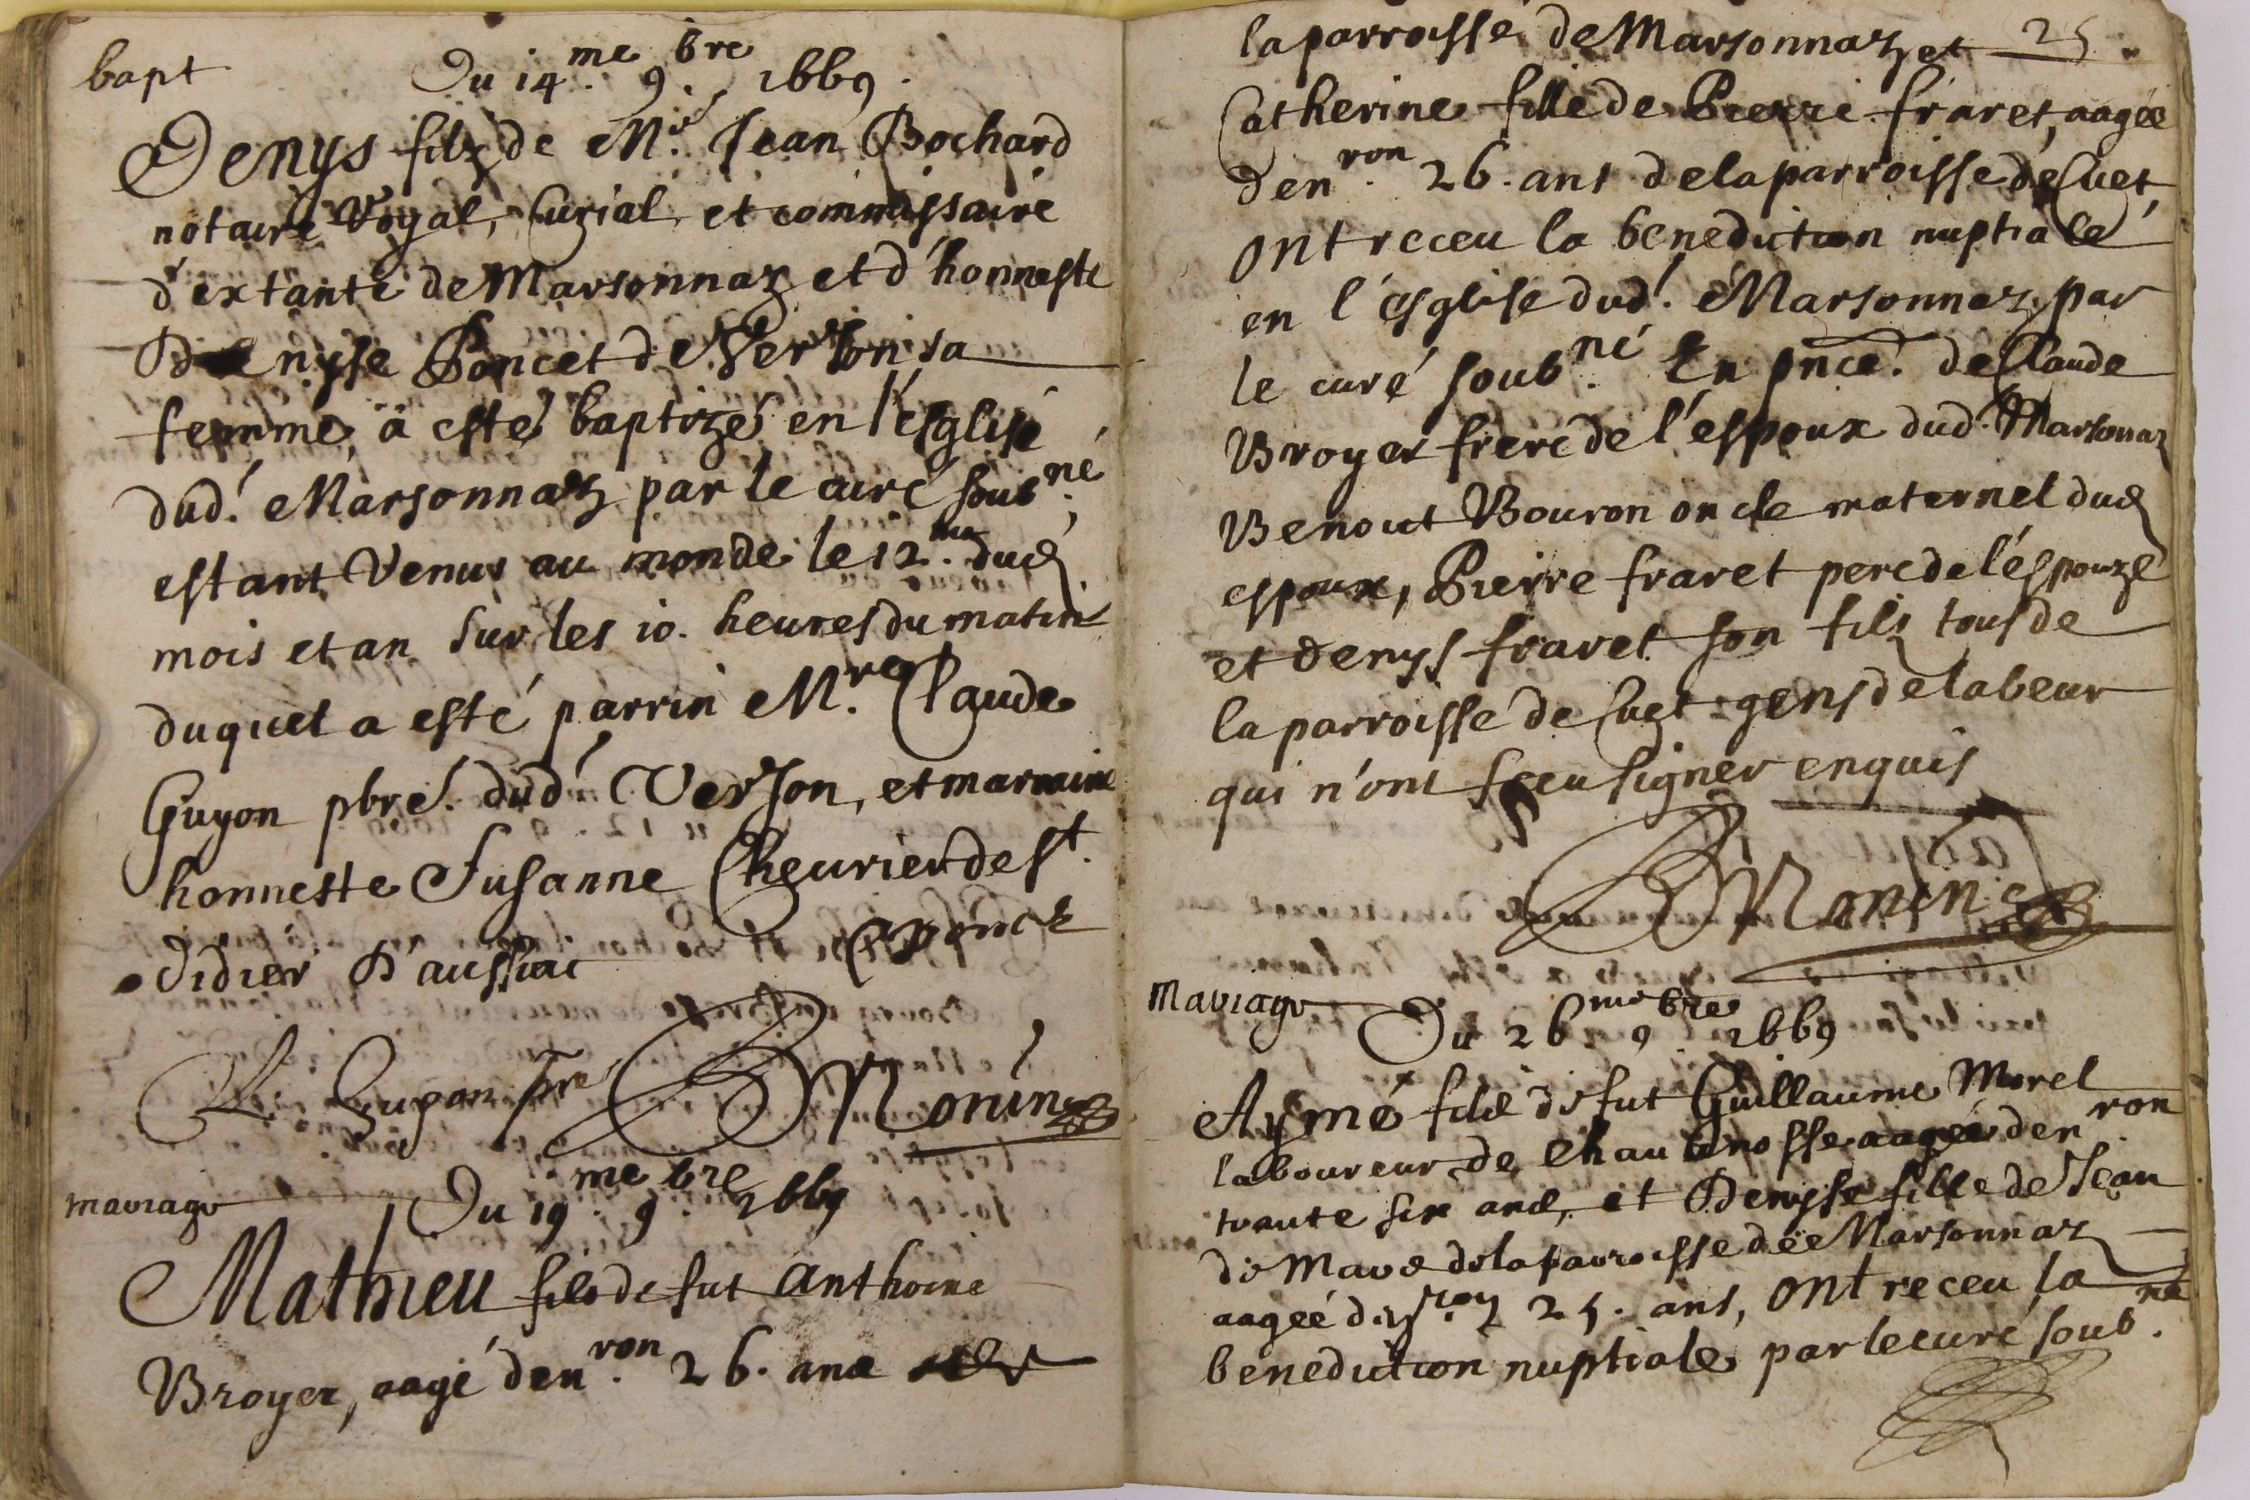 bapt
Du 14.me 9.bre 1669.
Denys filz de M.re Jean Bochard
notaire Royal, Curial, et commissaire
d'extante de Marsonnaz et d'honneste
Denyse Poncet de Verson sa
femme, a esté baptizé en l'esglise
dud.t Marsonnaz par le curé soub.né
estant venus au monde le 12.me dud
mois et an sur les 10. heures du matin
duquel a esté parrin M.re Claude
Guyon pbre. dud.t Verson, et marraine
honneste Susanne Cheurier de St.
didier D'aussiat
Guyon pbre Monin
mariage
Du 19.me 9.bre 1669
Mathieu filz de fut Anthoine
Broyer, aagé den.ron 26. ans
25.
la parroisse de Marsonnaz et
Catherine fille de Pierre fraret, aagée
den.ron 26. ans de la parroisse de Cuet,
ont receu la benediction nuptiale
en l'esglise dud.t Marsonnaz, par
le curé soub.né En pnce. de Claude
Broyer frere de l'espoux dud.t Marsonnaz
Benoict Bouron oncle maternel dud
espoux, Pierre fraret pere de l'espouze
et denys fraret son fils tous de
la parroisse de Cuet gens de labeur
qui n'ont sceu signer enquis
Monin
Mariage
Du 26.me 9.bre 1669
Aymé filz de fut Guillaume Morel
laboureur de aagée den.ron
trante six ans, et Denyse fille de Jean
de Mare de la parroisse de Marsonnaz
aagée d'en.ron 25. ans, ont receu la
benediction nuptiale par le curé soub.né